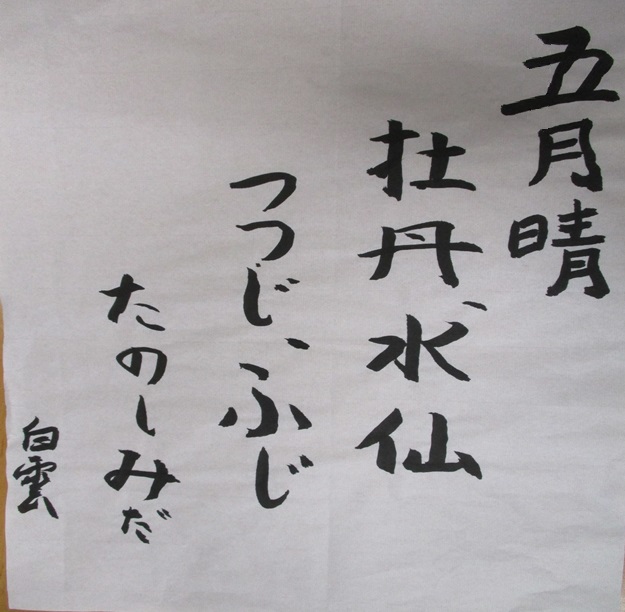 五月晴
牡丹、水仙
つつじ、ふじ
たのしみだ
白雲